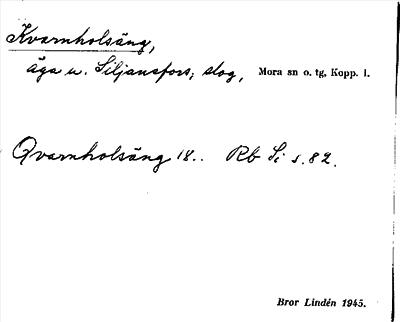 Kvarnholsäng,
äga u. Siljansfors; slog, Mora sn o. tg, Kopp. l.
Qvarnholsäng 18.. Rb Si s. 82.
Bror Lindén 1945.